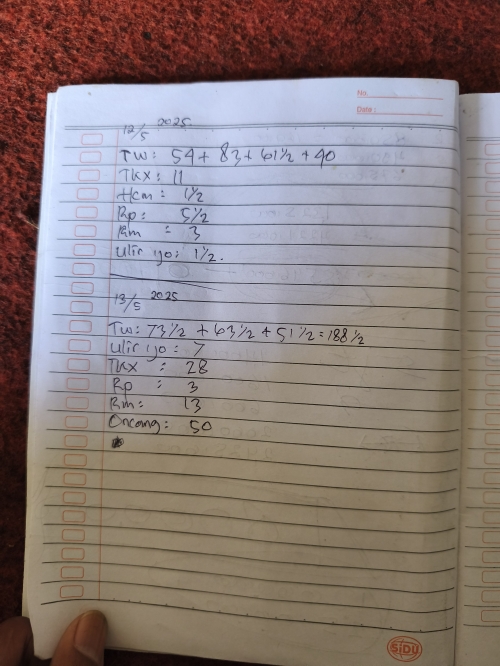 No.
Date :
12/5 2025
TW: 54 + 83 + 61 1/2 + 40
TKX: 11
Hcm: 1 1/2
Rp: 5 1/2
Rm : 3
Ulir ijo: 1 1/2.
13/5 2025
TW: 73 1/2 + 63 1/2 + 51 1/2 = 188 1/2
Ulir ijo: 7
TKX : 28
Rp : 3
Rm: 13
Oncang: 50
SiDU